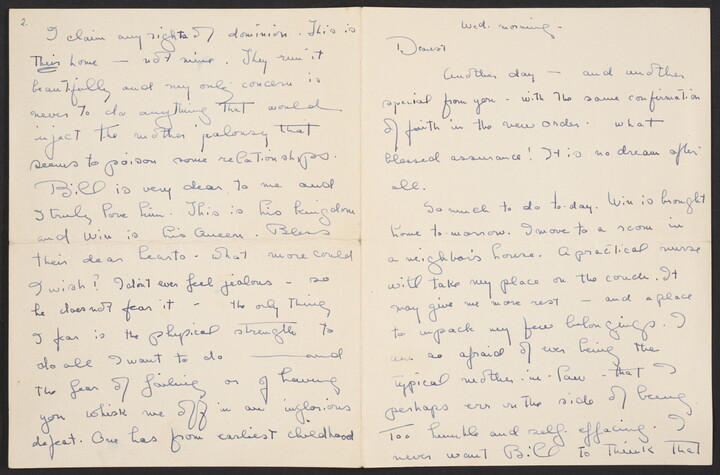 Wed. morning -
Dearest
Another day — and another
special from you - with the same confirmation
of faith in the new order. What
blessed assurance! It is no dream after
all.
So much to do to-day. Win is brought
home to-morrow. I move to a room in
a neighbor's house. A practical nurse
will take my place on the couch. It
may give me more rest — and a place
to unpack my few belongings. I
am so afraid of ever being the
typical mother-in-law - that I
perhaps err on the side of being
too humble and self-effacing. I
never want Bill to think that
2.
I claim any rights of dominion. This is
their home — not mine. They run it
beautifully and my only concern is
never to do anything that would
inject the mother jealousy that
seems to poison some relationships.
Bill is very dear to me and
I truly love him. This is his kingdom
and Win is his Queen. Bless
their dear hearts. What more could
I wish? I don't ever feel jealous - so
he does not fear it - the only thing
I fear is the physical strength to
do all I want to do — and
the fear of failing, or of having
you whisk me off in an inglorious
defeat. One has from earliest childhood